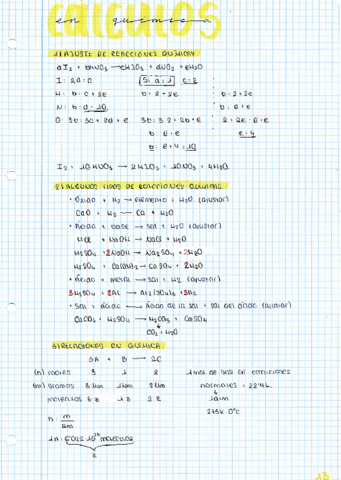 CALCULOS
en química
1) AJUSTE DE REACCIONES QUÍMICA
aI₂ + bHNO₃ → cHIO₃ + dNO₂ + eH₂O
I: 2a = c   Si a = 1   c = 2
H: b = c + 2e   b = 2 + 2e   b: 2+2e
N: b = d = 10   b: 6+e
O: 3b: 3c + 2d + e   3b: 3·2 + 2b + e   2 + 2e: 6+e
b: 6+e   e = 4
b: 6+4 = 10
I₂ + 10HNO₃ → 2HIO₃ + 10NO₂ + 4H₂O
2) ALGUNOS TIPOS DE REACCIONES QUÍMICAS
· Óxido + H₂ → elemento + H₂O (ajustar)
CaO + H₂ → Ca + H₂O
· Ácido + base → sal + H₂O (ajustar)
HCl + NaOH → NaCl + H₂O
H₂SO₄ + 2NaOH → Na₂SO₄ + 2H₂O
H₂SO₄ + Ca(OH)₂ → CaSO₄ + 2H₂O
· Ácido + metal → sal + H₂ (ajustar)
3H₂SO₄ + 2Al → Al₂(SO₄)₃ + 3H₂
· Sal + ácido → Ácido de la sal + sal del ácido (ajustar)
CaCO₃ + H₂SO₄ → H₂CO₃ + CaSO₄
CO₂ + H₂O
3) RELACIONES EN QUÍMICA
3A + B → 2C
(n) moles   3   1   2   1 mol de gas en condiciones
(m) gramos   3·Mm   1·Mm   2·Mm   normales = 22'4L
moléculas   3·B   1·B   2·B   1atm
273K 0ºC
n: m/Mm
1n: 6'022·10²³ moléculas
B